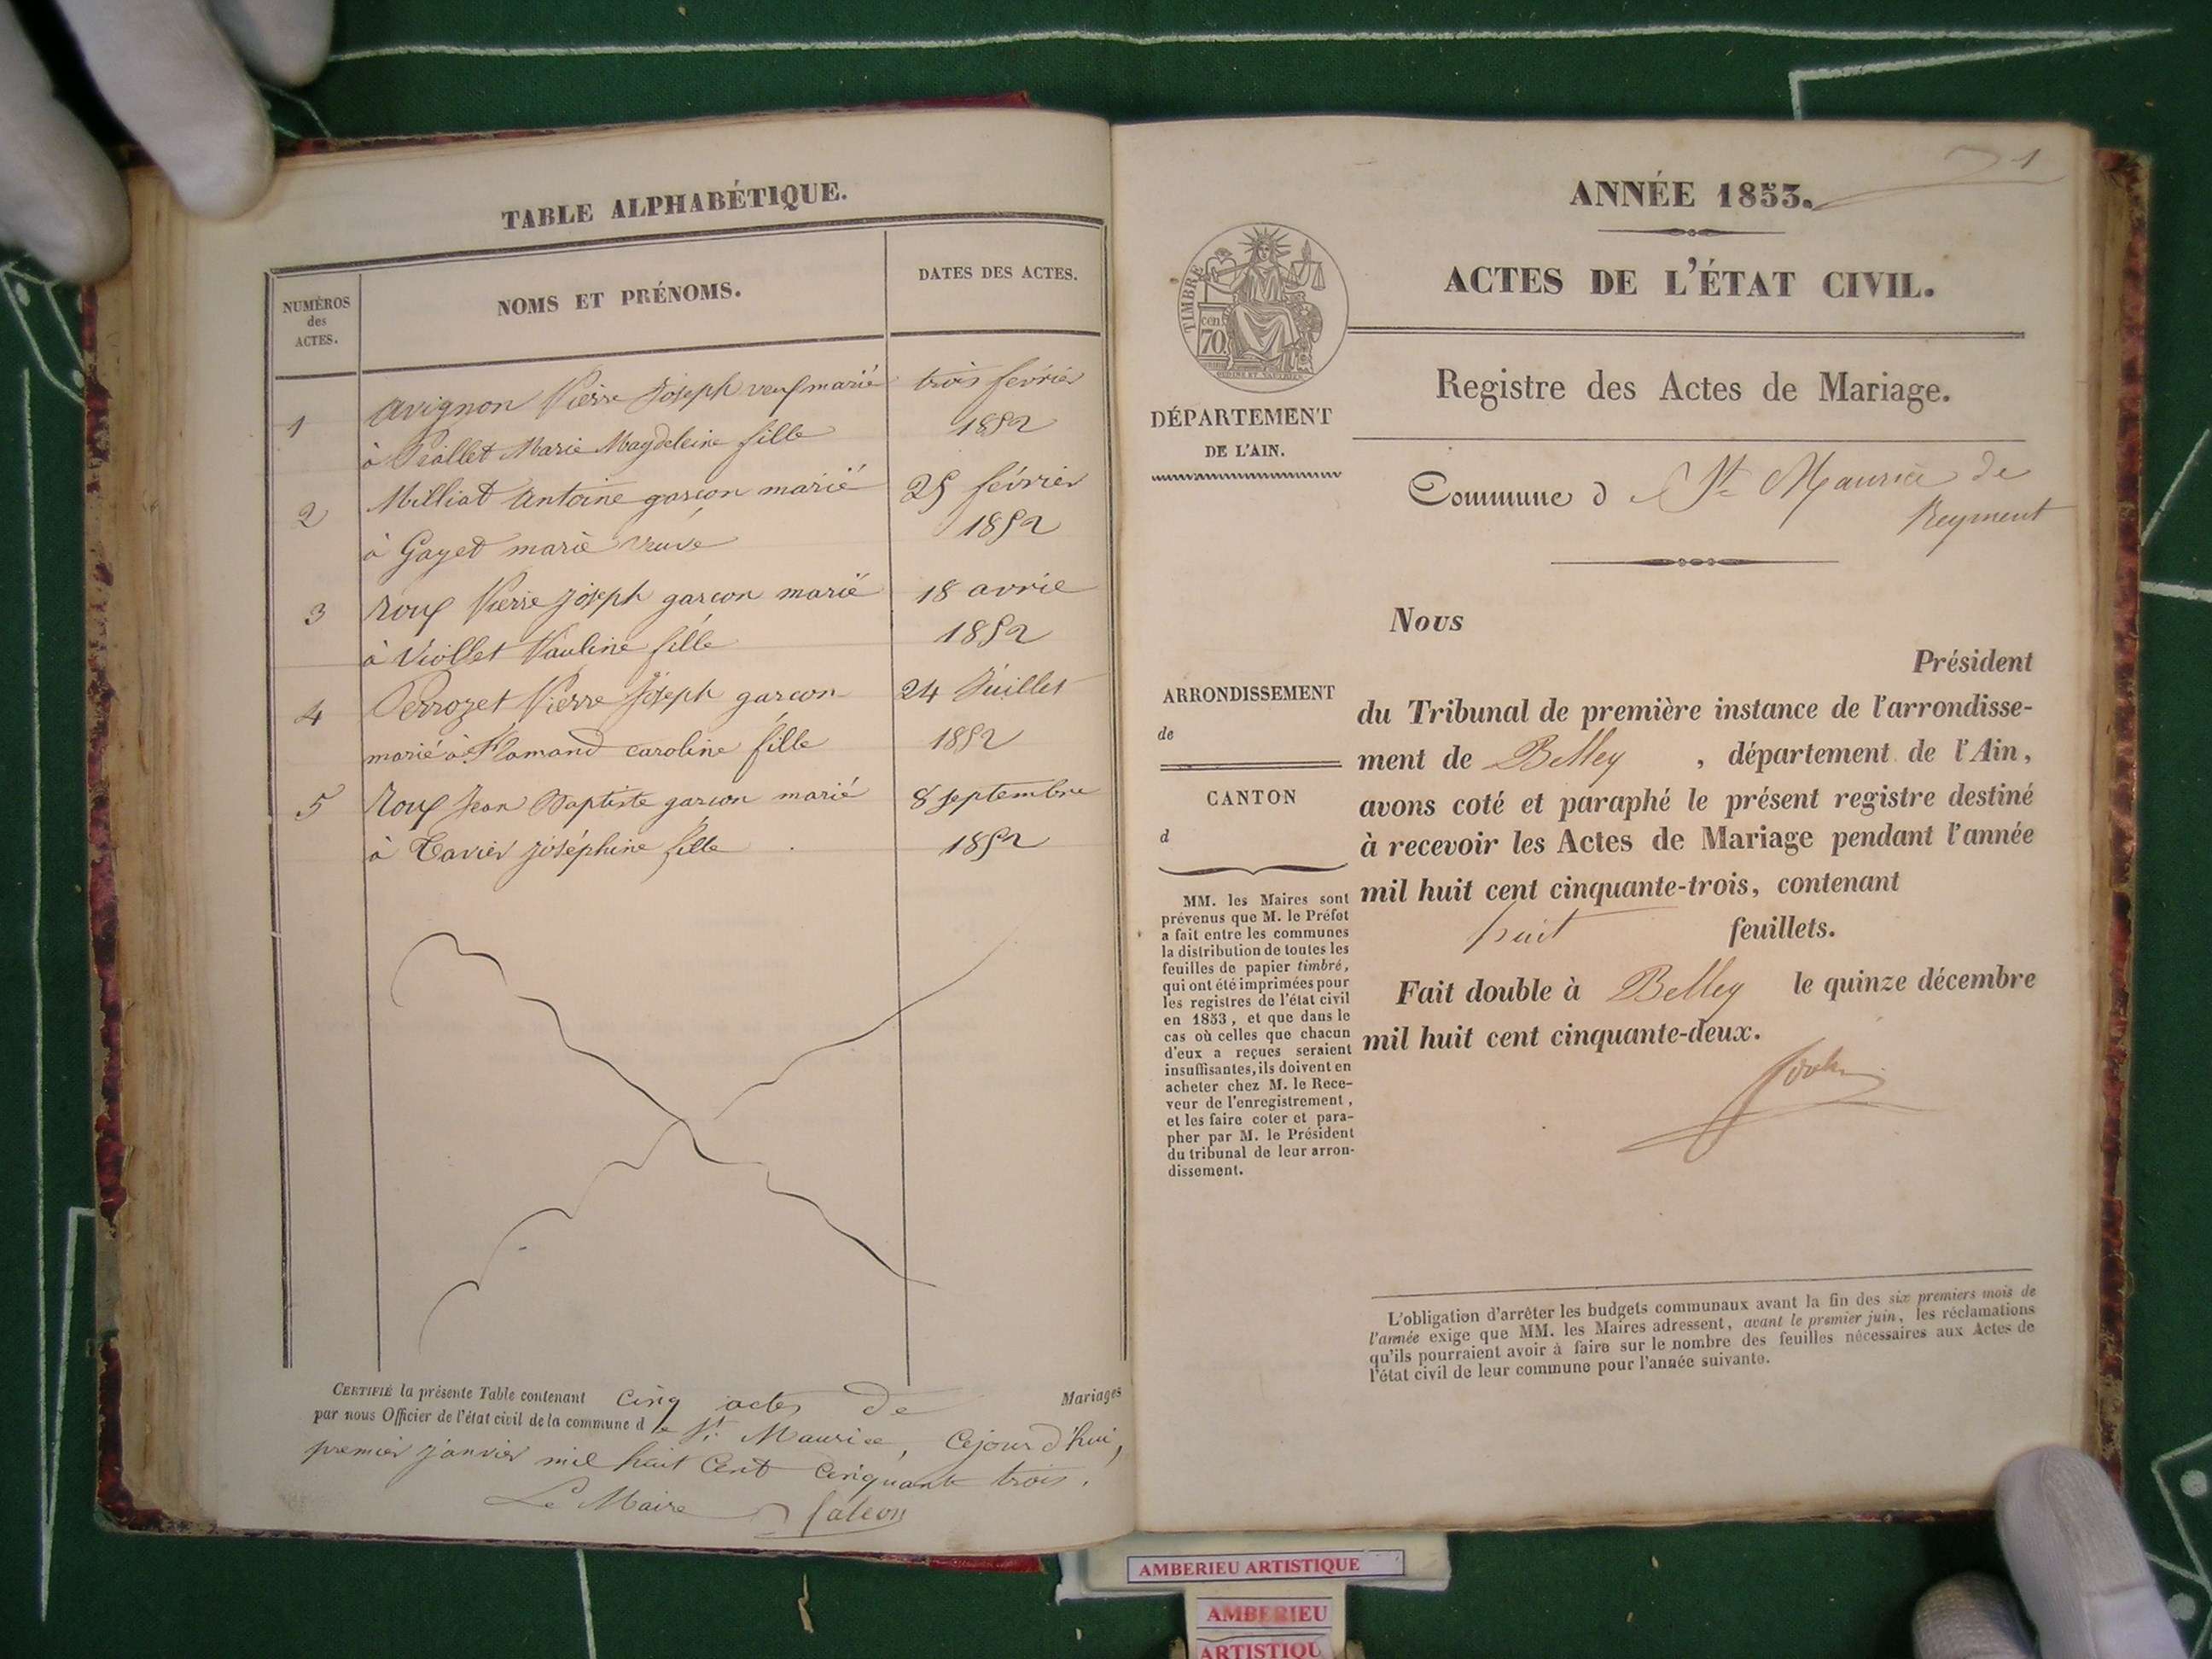 TABLE ALPHABÉTIQUE.
NUMÉROS
des
ACTES.
NOMS ET PRÉNOMS.
DATES DES ACTES.
1 avignon Pierre Joseph veuf marié trois fevrier
à Piollet Marie Magdeleine fille 1852
2 Milliat antoine garcon marié 25 février
à Gayet marie veuve 1852
3 Roux Pierre Joseph garcon marié 18 avril
à Viollet Pauline fille 1852
4 Perrozet Pierre Joseph garcon 24 Juillet
marié à Flamand caroline fille 1852
5 Roux Jean Baptiste garcon marié 8 septembre
à Tavier joséphine fille 1852
CERTIFIÉ la présente Table contenant cinq actes de Mariages
par nous Officier de l'état civil de la commune de St. Maurice, Cejourd'hui,
premier janvier mil huit Cent Cinquante trois.
Le Maire
1
ANNÉE 1853.
ACTES DE L'ÉTAT CIVIL.
TIMBRE
cen.
70
DÉPARTEMENT
DE L'AIN.
Registre des Actes de Mariage.
Commune d St. Maurice de
Reyment
Nous
Président
du Tribunal de première instance de l'arrondisse-
ment de Belley , département de l'Ain,
avons coté et paraphé le présent registre destiné
à recevoir les Actes de Mariage pendant l'année
mil huit cent cinquante-trois, contenant
huit feuillets.
Fait double à Belley le quinze décembre
mil huit cent cinquante-deux.
ARRONDISSEMENT
de
CANTON
d
MM. les Maires sont
prévenus que M. le Préfet
a fait entre les communes
la distribution de toutes les
feuilles de papier timbré,
qui ont été imprimées pour
les registres de l'état civil
en 1853, et que dans le
cas où celles que chacun
d'eux a reçues seraient
insuffisantes, ils doivent en
acheter chez M. le Rece-
veur de l'enregistrement,
et les faire coter et para-
pher par M. le Président
du tribunal de leur arron-
dissement.
L'obligation d'arrêter les budgets communaux avant la fin des six premiers mois de
l'année exige que MM. les Maires adressent, avant le premier juin, les réclamations
qu'ils pourraient avoir à faire sur le nombre des feuilles nécessaires aux Actes de
l'état civil de leur commune pour l'année suivante.
AMBERIEU ARTISTIQUE
AMBERIEU
ARTISTIQU